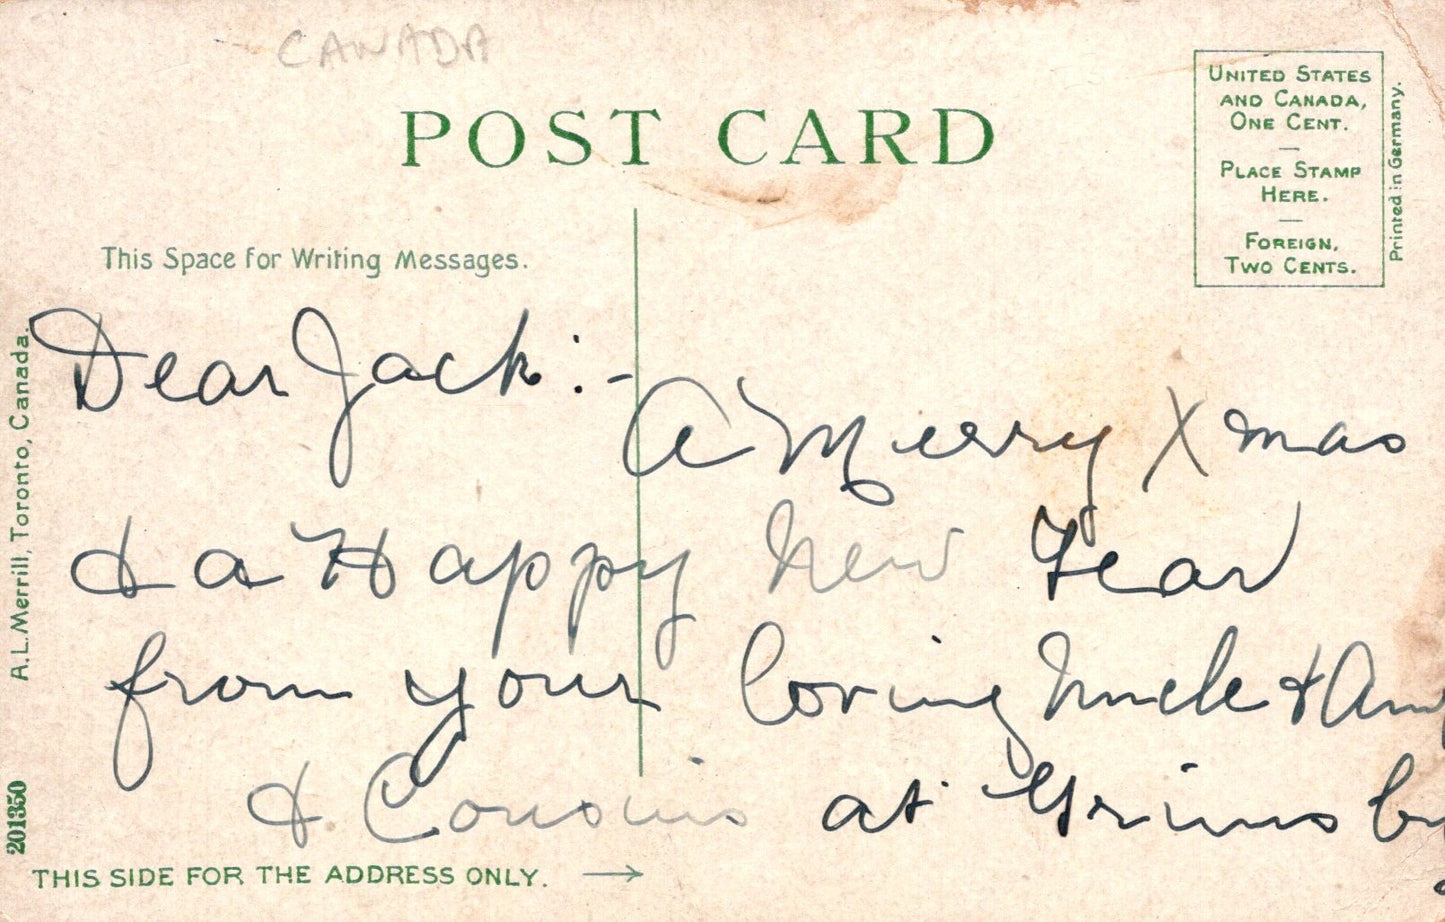 CANADA
POST CARD
UNITED STATES
AND CANADA,
ONE CENT.
PLACE STAMP
HERE.
FOREIGN,
TWO CENTS.
Printed in Germany.
This Space for Writing Messages.
Dear Jack:-
A Merry Xmas
& a Happy New Year
from your loving Uncle & Aunt
& Cousins at Grimsby
A.L. Merrill, Toronto, Canada.
201350
THIS SIDE FOR THE ADDRESS ONLY.